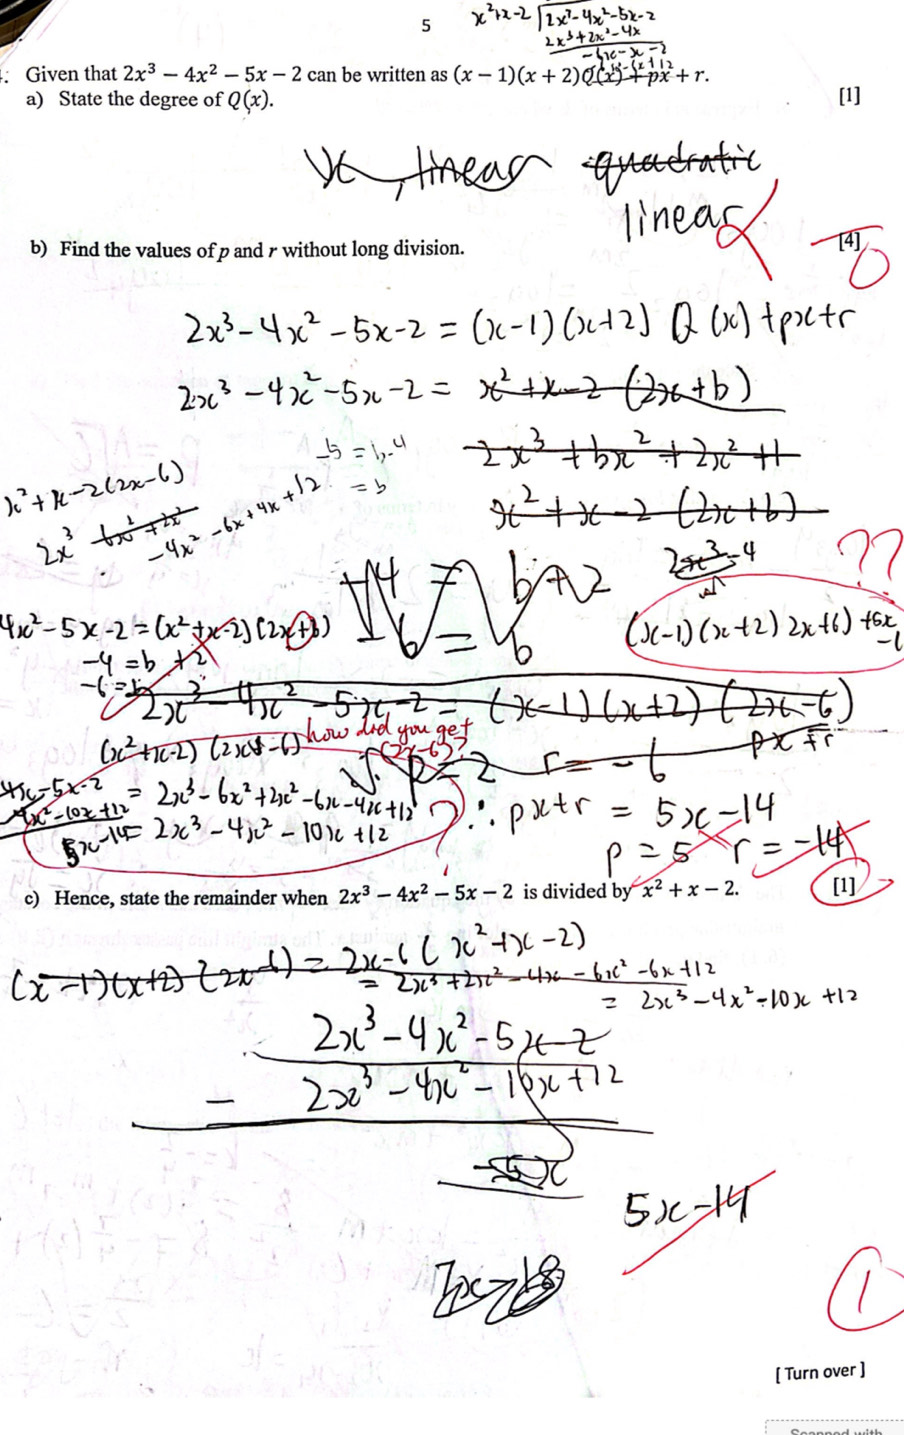 5
x²+x-2 2x³-4x²-5x-2
2x³+2x²-4x
Given that 2x³ − 4x² − 5x − 2 can be written as (x − 1)(x + 2)Q(x) + px + r.
a) State the degree of Q(x). [1]
x, linear quadratic
linear
b) Find the values of p and r without long division. [4]
0
2x³-4x²-5x-2 = (x-1)(x+2) Q(x) +px+r
2x³-4x²-5x-2 = x²+x-2 (2x+b)
-b = b-4
2x³ + bx² + 2x² +
x²+x-2(2x-6)
= b
x²+x-2 (2x+b)
2x³ 6x²+2x²
-4x²-6x-4x+12
2x³-4
??
-4 = b+2
-6 = b
(x-1)(x+2) 2x+6) +5x
4x²-5x-2 = (x²+x-2)(2x+b)
-4 = b +2
-6 = b
2x³-4x²-5x-2 = (x-1)(x+2)(2x-6)
how did you get
(2x-6)?
px+r
(x²+x-2)(2x-6)
p=2 r=-6
4x²-5x-2 = 2x³-6x²+2x²-6x-4x+12
4x²-10x+12
?
∴ px+r = 5x-14
5x-14 = 2x³-4x²-10x+12
p = 5 r = -14
c) Hence, state the remainder when 2x³ − 4x² − 5x − 2 is divided by x² + x − 2. [1]
(x-1)(x+2)(2x-6) = 2x-6 (x²+x-2)
= 2x³+2x²-4x-6x²-6x+12
= 2x³-4x²-10x+12
2x³-4x²-5x-2
- 2x³-4x²-10x+12
-5x
5x-14
1
[ Turn over ]
Scanned with